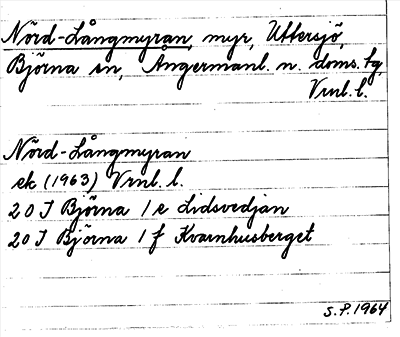 Nörd-Långmyran, myr, Uttersjö,
Björna sn, Ångermanl. n. doms. tg,
Vrnl. l.
Nörd-Långmyran
ek (1963) Vrnl. l.
20 J Björna 1 e Lidsvedjan
20 J Björna 1 f Kvarnhusberget
S. P. 1964